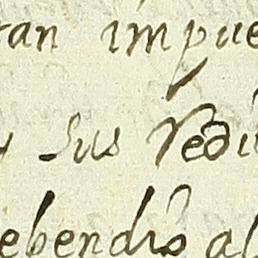 tan impue
y sus Redi
ebendas al